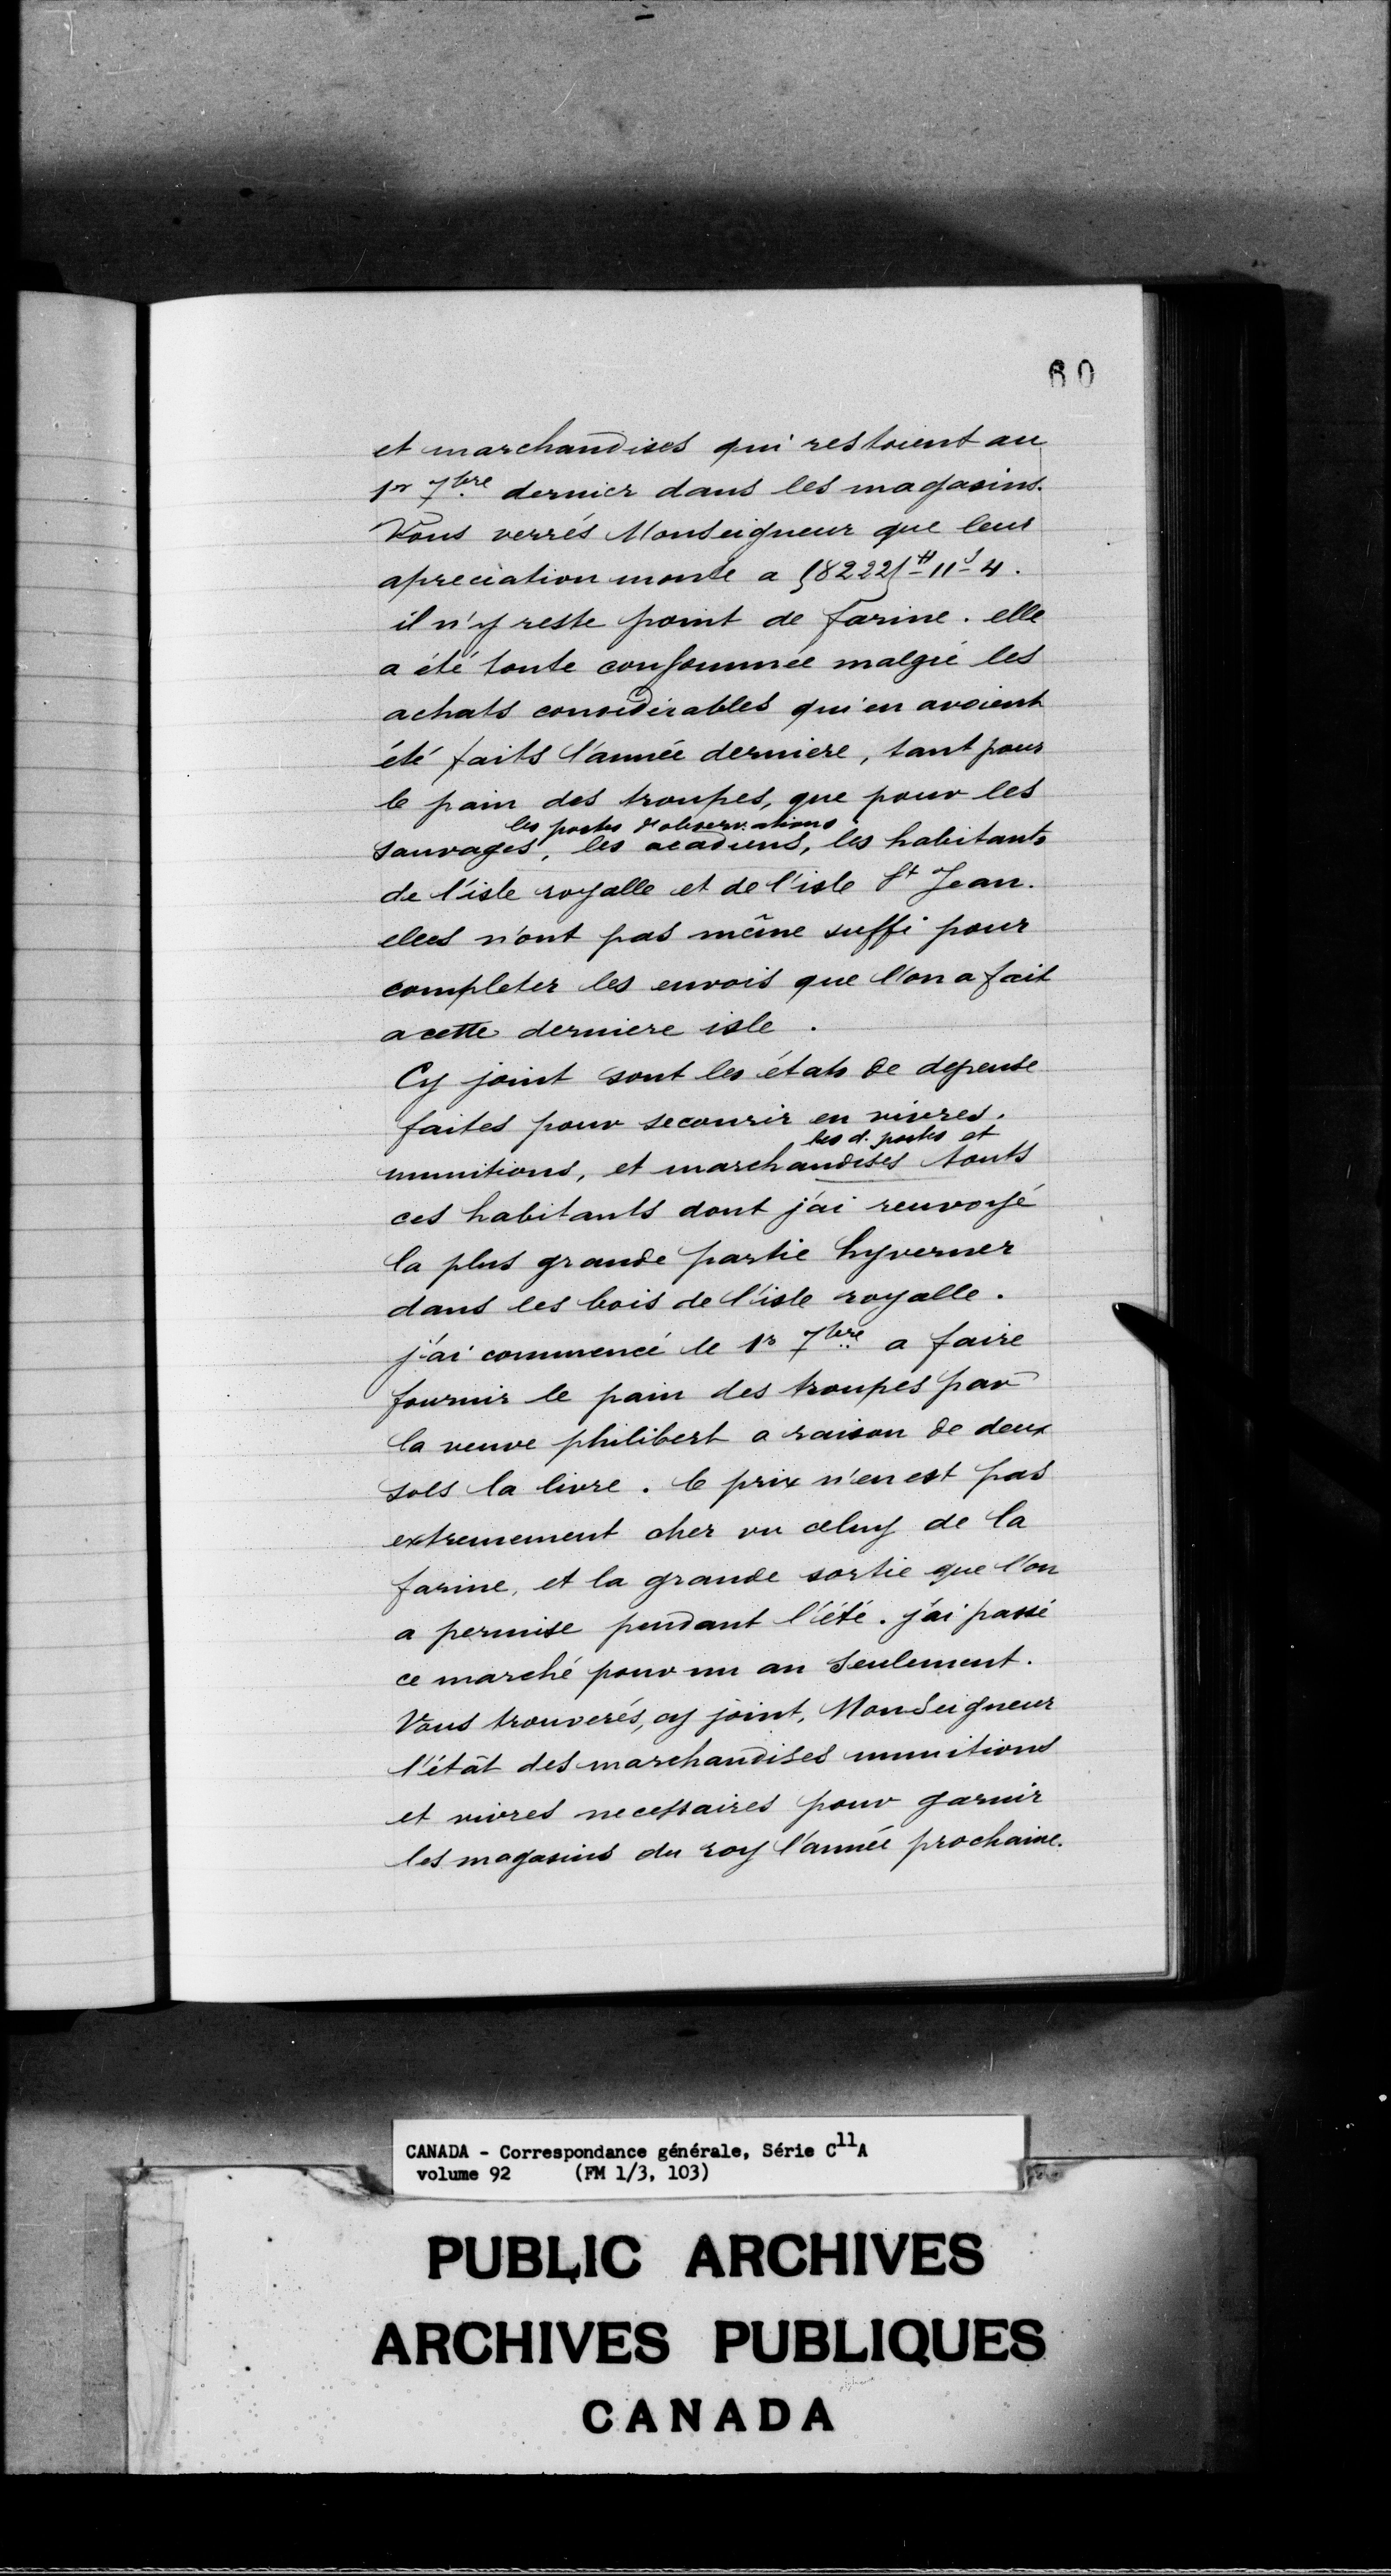 60
et marchandises qui restoient au
1er 7bre dernier dans les magasins.
Vous verrés Monseigneur que leur
apreciation monte a 182221# 11s 4.
il n'y reste point de farine. elle
a été toute consommée malgré les
achats considerables qui en avoient
été faits l'année derniere, tant pour
le pain des troupes, que pour les
les postes d'observations
sauvages, les acadiens, les habitants
de l'isle royalle et de l'isle St Jean.
elles n'ont pas même suffi pour
completer les envois que l'on a fait
a cette derniere isle.
Cy joint sont les états de depense
faites pour secourir en vivres.
les d. postes et
munitions, et marchandises touts
ces habitants dont j'ai renvoyé
la plus grande partie hyverner
dans les bois de l'isle royalle.
j'ai commencé le 1r 7bre a faire
fournir le pain des troupes par
la veuve philibert a raison de deux
sols la livre. le prix n'en est pas
extremement cher vu celuy de la
farine, et la grande sortie que l'on
a permise pendant l'été. j'ai passé
ce marché pour un an seulement.
Vous trouverés, cy joint, Monseigneur
l'étât des marchandises munitions
et vivres necessaires pour garnir
les magasins du roy l'année prochaine.
CANADA - Correspondance générale, Série C11A
volume 92 (FM 1/3, 103)
PUBLIC ARCHIVES
ARCHIVES PUBLIQUES
CANADA